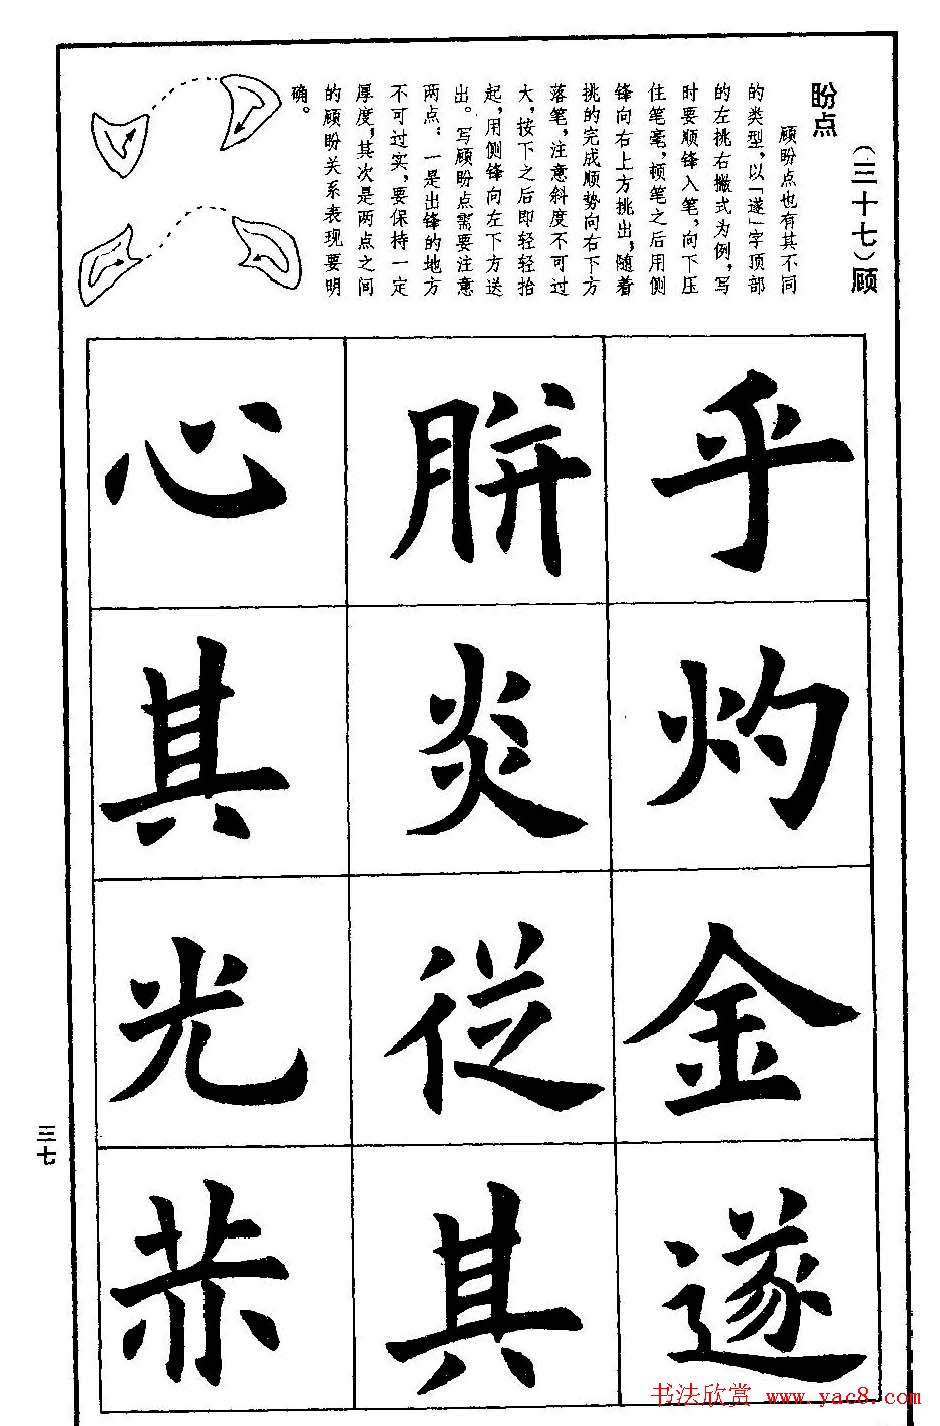 （三十七）顾
盼点
顾盼点也有其不同
的类型，以「遂」字顶部
的左挑右撇式为例，写
时要顺锋入笔，向下压
住笔毫，顿笔之后用侧
锋向右上方挑出，随着
挑的完成顺势向右下方
落笔，注意斜度不可过
大，按下之后即轻轻抬
起，用侧锋向左下方送
出。写顾盼点需要注意
两点：一是出锋的地方
不可过实，要保持一定
厚度，其次是两点之间
的顾盼关系表现要明
确。
乎灼金遂
胼炎從其
心其光
三七
书法欣赏 www.yac8.com